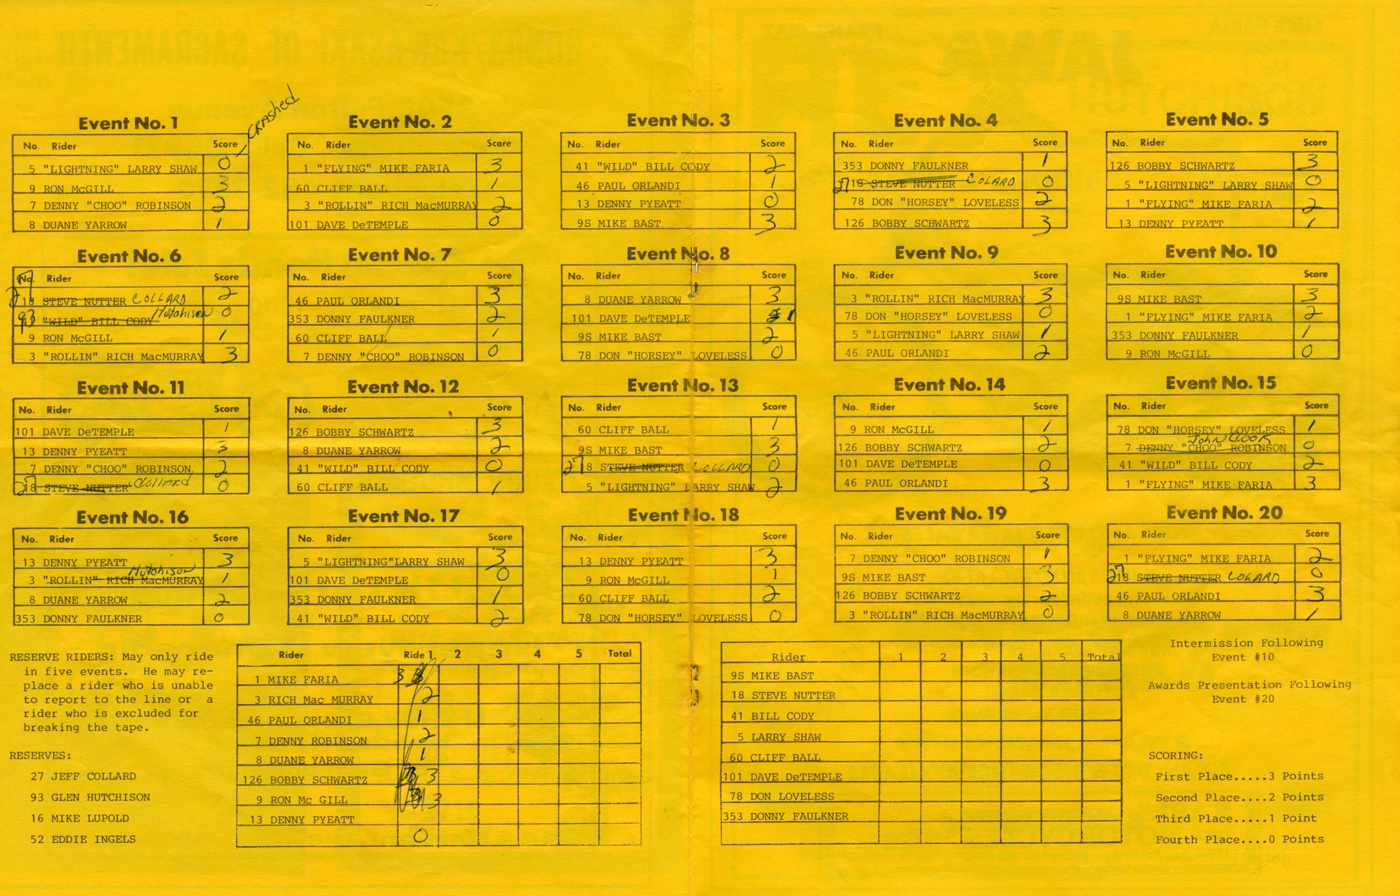 crashed
Event No. 1
No. Rider Score
5 "LIGHTNING" LARRY SHAW 0
9 RON McGILL 3
7 DENNY "CHOO" ROBINSON 2
8 DUANE YARROW 1
Event No. 2
No. Rider Score
1 "FLYING" MIKE FARIA 3
60 CLIFF BALL 1
3 "ROLLIN" RICH MacMURRAY 2
101 DAVE DeTEMPLE 0
Event No. 3
No. Rider Score
41 "WILD" BILL CODY 2
46 PAUL ORLANDI 1
13 DENNY PYEATT 0
9S MIKE BAST 3
Event No. 4
No. Rider Score
353 DONNY FAULKNER 1
27 18 STEVE NUTTER COLARD 0
78 DON "HORSEY" LOVELESS 2
126 BOBBY SCHWARTZ 3
Event No. 5
No. Rider Score
126 BOBBY SCHWARTZ 3
5 "LIGHTNING" LARRY SHAW 0
1 "FLYING" MIKE FARIA 2
13 DENNY PYEATT 1
Event No. 6
No. Rider Score
27 18 STEVE NUTTER COLLARD 2
93 "WILD" BILL CODY Hutchison 0
9 RON McGILL 1
3 "ROLLIN" RICH MacMURRAY 3
Event No. 7
No. Rider Score
46 PAUL ORLANDI 3
353 DONNY FAULKNER 2
60 CLIFF BALL 1
7 DENNY "CHOO" ROBINSON 0
Event No. 8
No. Rider Score
8 DUANE YARROW 3
101 DAVE DeTEMPLE 1
9S MIKE BAST 2
78 DON "HORSEY" LOVELESS 0
Event No. 9
No. Rider Score
3 "ROLLIN" RICH MacMURRAY 3
78 DON "HORSEY" LOVELESS 0
5 "LIGHTNING" LARRY SHAW 1
46 PAUL ORLANDI 2
Event No. 10
No. Rider Score
9S MIKE BAST 3
1 "FLYING" MIKE FARIA 2
353 DONNY FAULKNER 1
9 RON McGILL 0
Event No. 11
No. Rider Score
101 DAVE DeTEMPLE 1
13 DENNY PYEATT 3
7 DENNY "CHOO" ROBINSON 2
27 18 STEVE NUTTER Collard 0
Event No. 12
No. Rider Score
126 BOBBY SCHWARTZ 3
8 DUANE YARROW 2
41 "WILD" BILL CODY 0
60 CLIFF BALL 1
Event No. 13
No. Rider Score
60 CLIFF BALL 1
9S MIKE BAST 3
27 18 STEVE NUTTER COLLARD 0
5 "LIGHTNING" LARRY SHAW 2
Event No. 14
No. Rider Score
9 RON McGILL 1
126 BOBBY SCHWARTZ 2
101 DAVE DeTEMPLE 0
46 PAUL ORLANDI 3
Event No. 15
No. Rider Score
78 DON "HORSEY" LOVELESS 1
John COOK
7 DENNY "CHOO" ROBINSON 0
41 "WILD" BILL CODY 2
1 "FLYING" MIKE FARIA 3
Event No. 16
No. Rider Score
13 DENNY PYEATT 3
Hutchison
3 "ROLLIN" RICH MacMURRAY 1
8 DUANE YARROW 2
353 DONNY FAULKNER 0
Event No. 17
No. Rider Score
5 "LIGHTNING"LARRY SHAW 3
101 DAVE DeTEMPLE 0
353 DONNY FAULKNER 1
41 "WILD" BILL CODY 2
Event No. 18
No. Rider Score
13 DENNY PYEATT 3
9 RON McGILL 1
60 CLIFF BALL 2
78 DON "HORSEY" LOVELESS 0
Event No. 19
No. Rider Score
7 DENNY "CHOO" ROBINSON 1
9S MIKE BAST 3
126 BOBBY SCHWARTZ 2
3 "ROLLIN" RICH MacMURRAY 0
Event No. 20
No. Rider Score
1 "FLYING" MIKE FARIA 2
27 18 STEVE NUTTER COLARD 0
46 PAUL ORLANDI 3
8 DUANE YARROW 1
RESERVE RIDERS: May only ride
in five events. He may re-
place a rider who is unable
to report to the line or a
rider who is excluded for
breaking the tape.
RESERVES:
27 JEFF COLLARD
93 GLEN HUTCHISON
16 MIKE LUPOLD
52 EDDIE INGELS
Rider Ride 1 2 3 4 5 Total
1 MIKE FARIA 3
3 RICH Mac MURRAY 2
46 PAUL ORLANDI 1
7 DENNY ROBINSON 2
8 DUANE YARROW 1
126 BOBBY SCHWARTZ 3
9 RON Mc GILL 3
13 DENNY PYEATT
0
Rider 1 2 3 4 5 Total
9S MIKE BAST
18 STEVE NUTTER
41 BILL CODY
5 LARRY SHAW
60 CLIFF BALL
101 DAVE DeTEMPLE
78 DON LOVELESS
353 DONNY FAULKNER
Intermission Following
Event #10
Awards Presentation Following
Event #20
SCORING:
First Place.....3 Points
Second Place....2 Points
Third Place.....1 Point
Fourth Place....0 Points